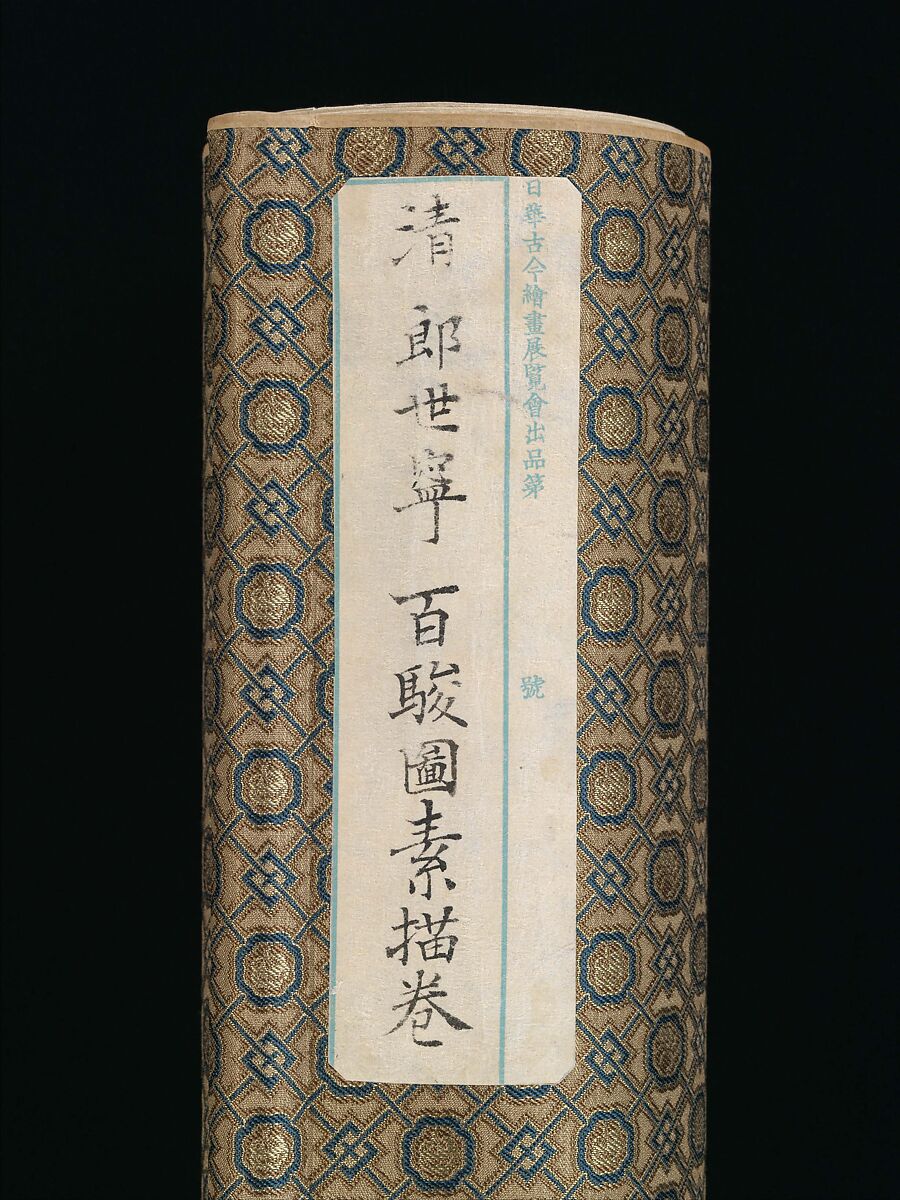 日華古今繪畫展覧會出品第 號
清 郎世寧 百駿圖素描卷